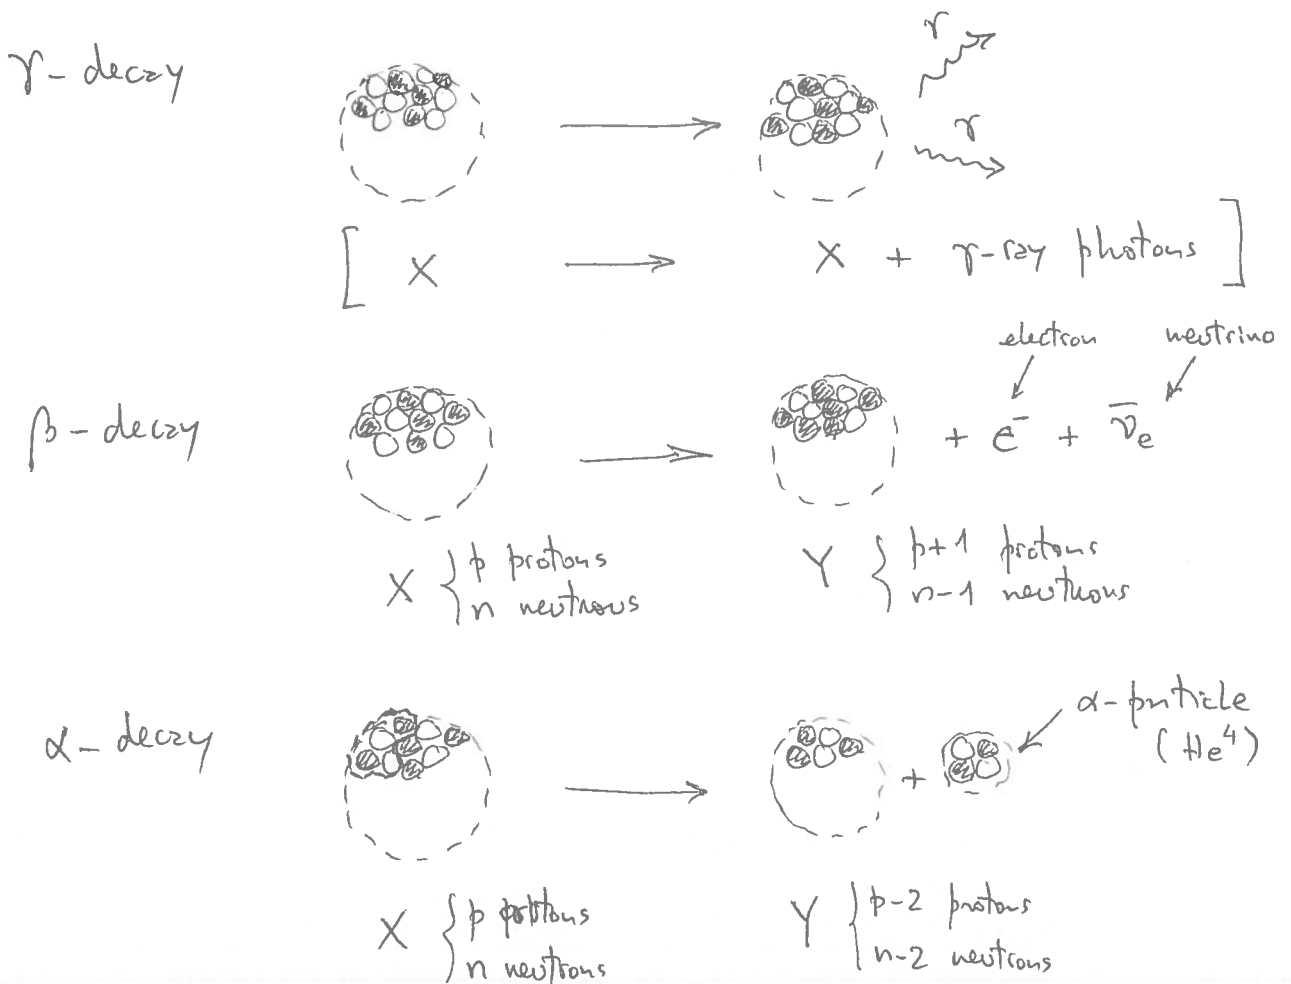 γ-decay
γ
γ
[ X → X + γ-ray photons ]
electron neutrino
β-decay
+ e⁻ + ν̄ₑ
X { p protons
n neutrons
Y { p+1 protons
n-1 neutrons
α-decay
+
α-particle
(He⁴)
X { p protons
n neutrons
Y { p-2 protons
n-2 neutrons